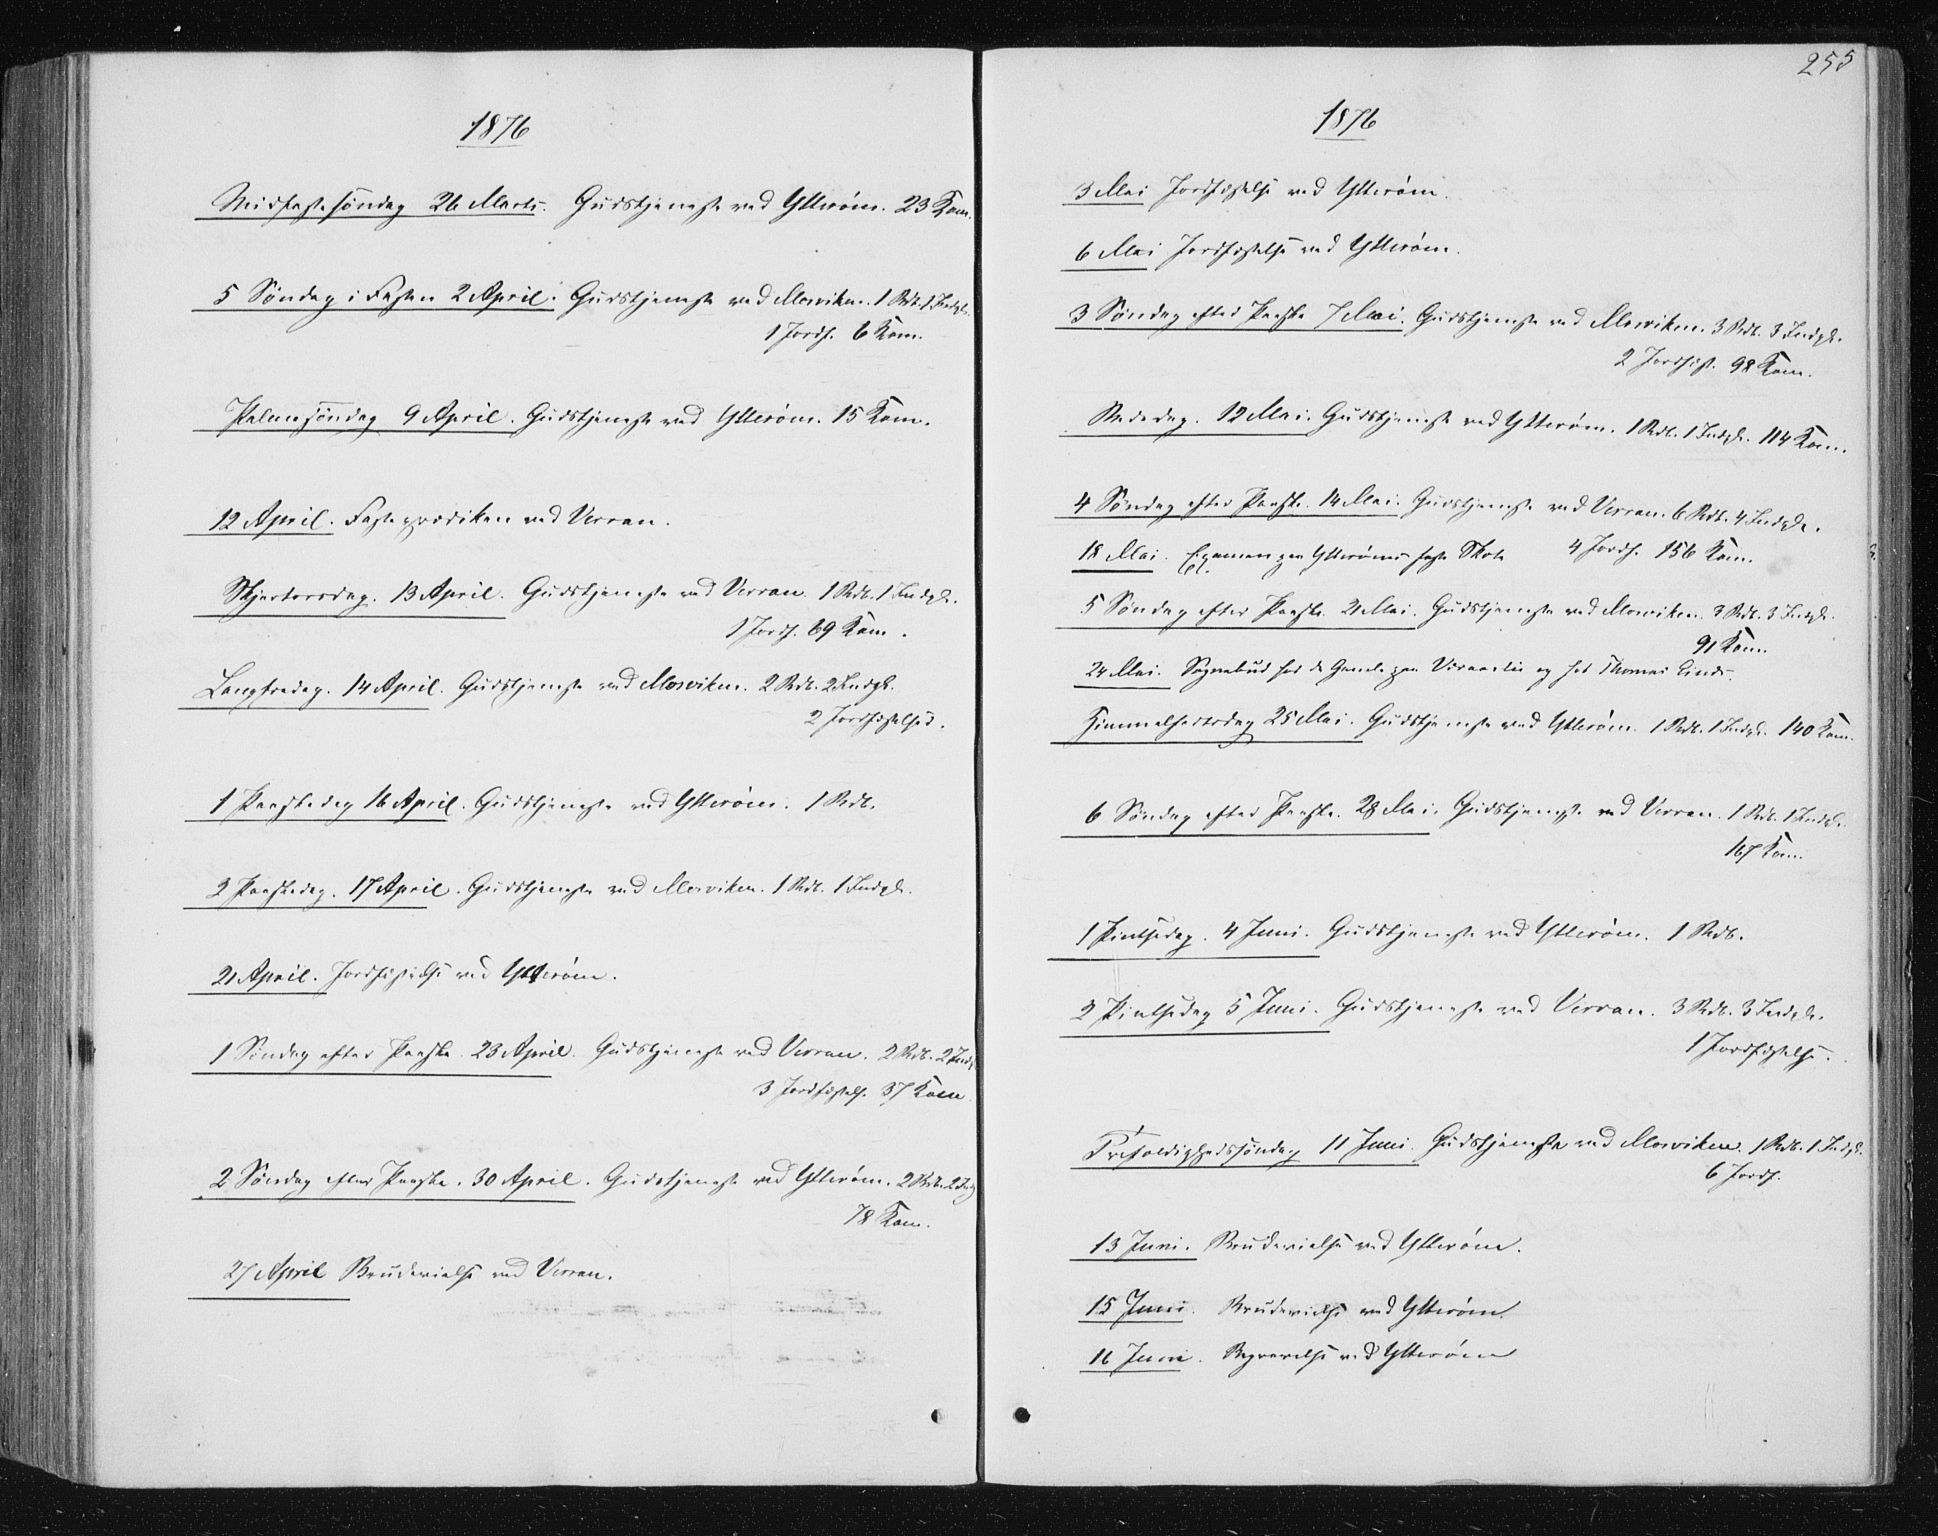 1876
Midfastesöndag 26 Marts. Gudstjeneste ved Ytterøen. 23 Kom.
5 Søndag i Fasten 2 April. Gudstjeneste ved Mosviken. 1 Ædb. 1 Indgk.
1 Jordf. 6 Kom.
Palmesøndag 9 April. Gudstjeneste ved Ytterøen. 15 Kom.
12 April. Fasteprædiken ved Verran.
Skjertorsdag. 13 April. Gudstjeneste ved Verran. 1 Ædb. 1 Indgk.
1 Jordf. 69 Kom.
Langfredag. 14 April. Gudstjeneste ved Mosviken. 2 Ædb. 2 Indgk.
2 Jordfæstelser.
1 Paaskedag 16 April. Gudstjeneste ved Ytterøen. 1 Ædb.
2 Paaskedag. 17 April. Gudstjeneste ved Mosviken. 1 Ædb. 1 Indgk.
21 April. Jordfæstelse ved Ytterøen.
1 Söndag efter Paaske. 23 April. Gudstjeneste ved Verran. 2 Ædb. 2 Indgk
3 Jordfæstels. 37 Kom.
2 Søndag efter Paaske. 30 April. Gudstjeneste ved Ytterøen. 2 Ædb. 2 Indg
78 Kom.
27 April Brudevielse ved Verran.
255
1876
3 Mai Jordfæstelse ved Ytterøen.
6 Mai Jordfæstelse ved Ytterøen.
3 Søndag efter Paaske 7 Mai. Gudstjeneste ved Mosviken. 3 Ædb. 3 Indgk.
2 Jordfæst. 98 Kom.
Bededag. 12 Mai. Gudstjeneste ved Ytterøen. 1 Ædb. 1 Indgk. 114 Kom.
4 Søndag efter Paaske. 14 Mai. Gudstjeneste ved Verran. 6 Ædb. 4 Indgk.
4 Jordf. 156 Kom.
18 Mai. Examen paa Ytterøens faste Skole
5 Søndag efter Paaske. 21 Mai. Gudstjeneste ved Mosviken. 3 Ædb. 3 Indgk.
91 Kom.
24 Mai. Sognebud hos de Gamle paa og hos Thomas
Himmelfartsdag 25 Mai. Gudstjeneste ved Ytterøen. 1 Ædb. 1 Indgk. 140 Kom.
6 Søndag efter Paaske. 28 Mai. Gudstjeneste ved Verran. 1 Ædb. 1 Indgk.
167 Kom.
1 Pintsedag. 4 Juni. Gudstjeneste ved Ytterøen. 1 Ædb.
2 Pintsedag 5 Juni. Gudstjeneste ved Verran. 3 Ædb. 3 Indgk.
1 Jordfæstelse.
Trefoldighedssøndag 11 Juni. Gudstjeneste ved Mosviken. 1 Ædb. 1 Indgk.
6 Jordf.
13 Juni. Brudevielse ved Ytterøen.
15 Juni. Brudevielse ved Ytterøen.
16 Juni. Begravelse ved Ytterøen